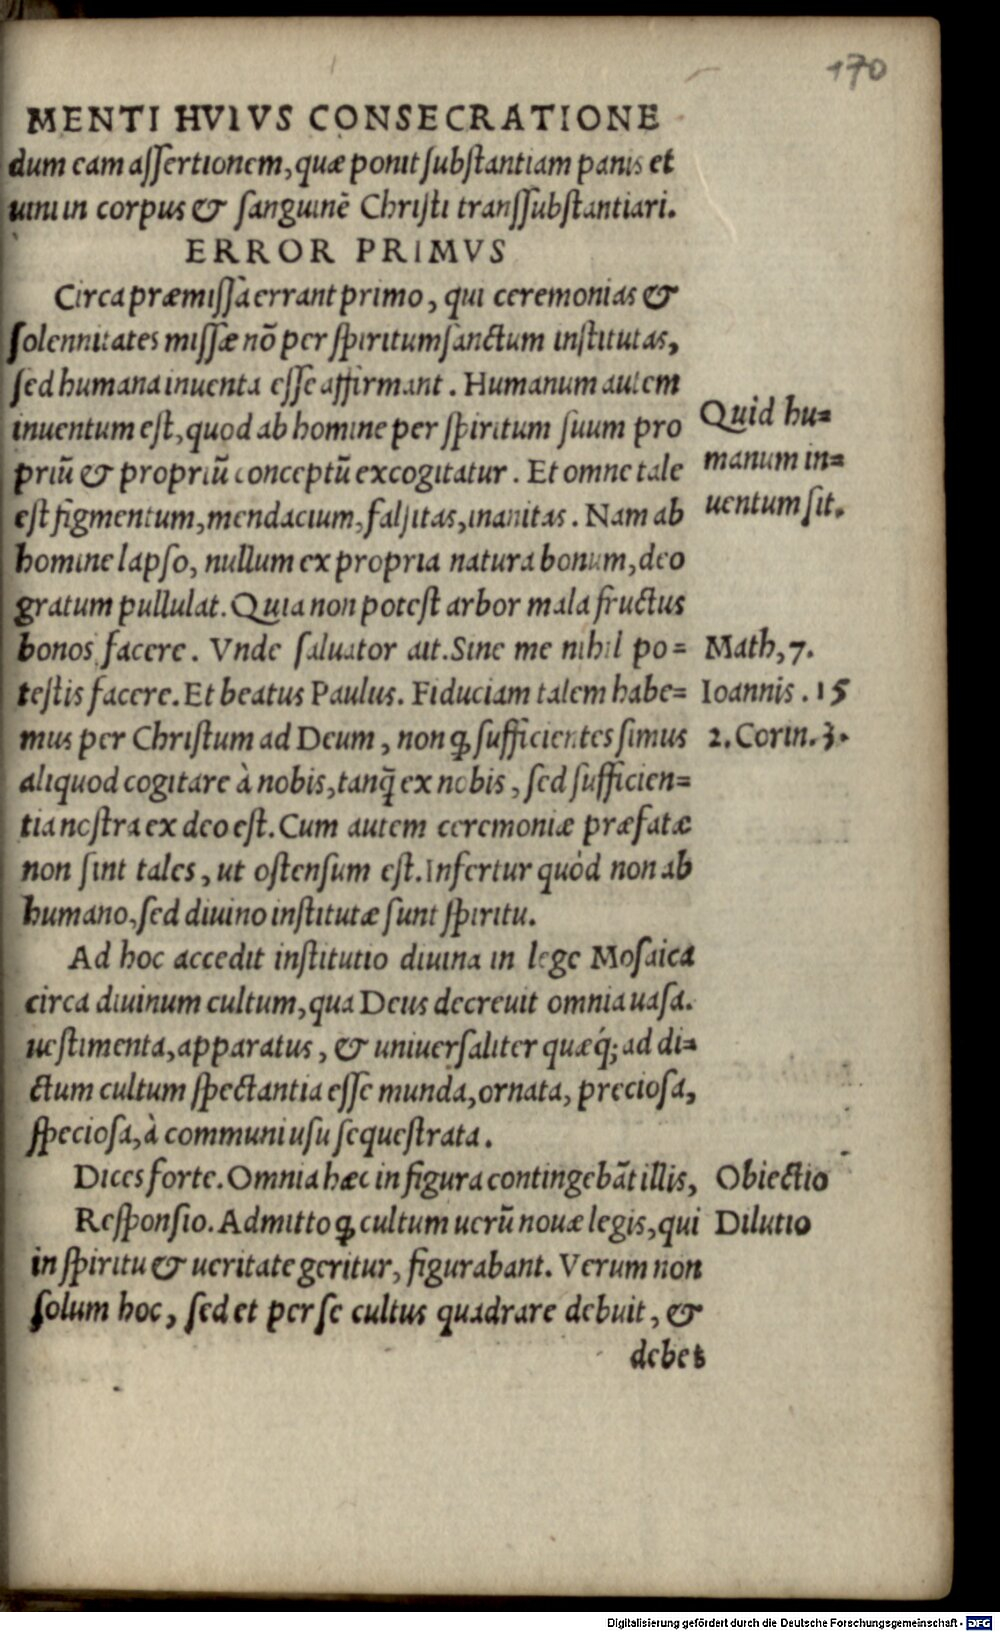 170
MENTI HVIVS CONSECRATIONE
dum eam assertionem, quæ ponit substantiam panis et
uini in corpus & sanguinē Christi transsubstantiari.
ERROR PRIMVS
Circa præmissa errant primo, qui ceremonias &
solennitates missæ nō per spiritum sanctum institutas,
sed humana inuenta esse affirmant. Humanum autem
inuentum est, quod ab homine per spiritum suum pro
priū & propriū conceptū excogitatur. Et omne tale
est figmentum, mendacium, falsitas, inanitas. Nam ab
homine lapso, nullum ex propria natura bonum, deo
gratum pullulat. Quia non potest arbor mala fructus
bonos facere. Vnde saluator ait. Sine me nihil po=
testis facere. Et beatus Paulus. Fiduciam talem habe=
mus per Christum ad Deum, non ꝙ sufficientes simus
aliquod cogitare à nobis, tanq̃ ex nobis, sed sufficien=
tia nostra ex deo est. Cum autem ceremoniæ præfatæ
non sint tales, ut ostensum est. Infertur quòd non ab
humano, sed diuino institutæ sunt spiritu.
Ad hoc accedit institutio diuina in lege Mosaica
circa diuinum cultum, qua Deus decreuit omnia uasa.
uestimenta, apparatus, & uniuersaliter quæq́; ad di=
ctum cultum spectantia esse munda, ornata, preciosa,
speciosa, à communi usu sequestrata.
Dices forte. Omnia hæc in figura contingebāt illis,
Responsio. Admitto ꝙ cultum uerū nouæ legis, qui
in spiritu & ueritate geritur, figurabant. Verum non
solum hoc, sed et per se cultus quadrare debuit, &
debet
Quid hu=
manum in=
uentum sit.
Math, 7.
Ioannis. 15
2. Corin. 3.
Obiectio
Dilutio
Digitalisierung gefördert durch die Deutsche Forschungsgemeinschaft - DFG